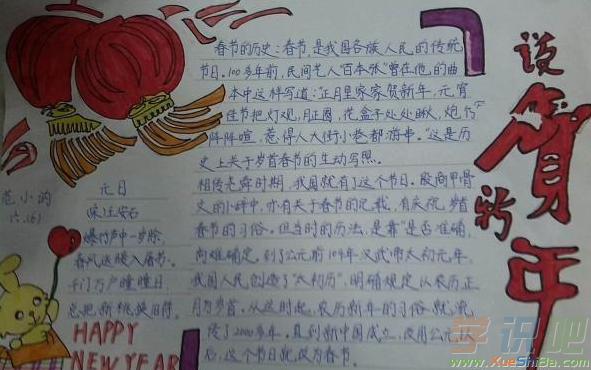 春节的历史:春节,是我国各族人民的传统
节日。100多年前,民间艺人"百本张"曾在他的曲
本中这样写道:"正月里家家贺新年,元宵
佳节把灯观,月正圆,花盒子处处瞅,炮竹
阵阵喧,惹得人大街小巷都游串。"这是历
史上关于岁首春节的生动写照。
相传尧舜时期,我国就有了这个节日。殷商甲骨
文的小碎中,亦有关于春节的记载,有庆祝岁首
春节的习俗。但当时的历法,是靠"是否准确,
尚难确定。到了公元前104年汉武帝太初元年,
我国人民创造了"太初历",明确规定以农历正
月为岁首。从这时起,农历新年的习俗就流
传了2000多年。直到新中国成立,使用公元
后,这个节日就改为春节。
范小
六.(6)
元日
宋 王安石
爆竹声中一岁除,
春风送暖入屠苏。
千门万户曈曈日,
总把新桃换旧符。
HAPPY
NEW YEAR
说
贺
新
年
学识吧
www.XueShiBa.com